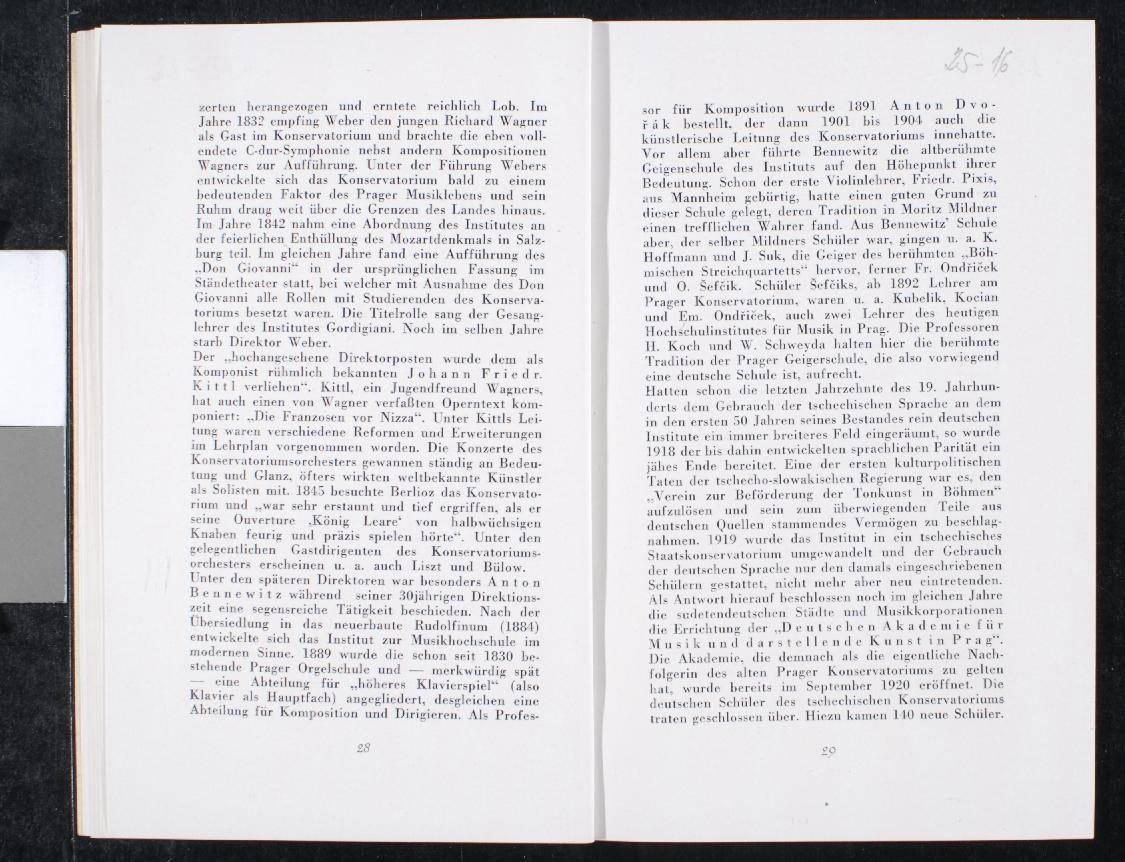 zerten herangezogen und erntete reichlich Lob. Im
Jahre 1832 empfing Weber den jungen Richard Wagner
als Gast im Konservatorium und brachte die eben voll-
endete C-dur-Symphonie nebst andern Kompositionen
Wagners zur Aufführung. Unter der Führung Webers
entwickelte sich das Konservatorium bald zu einem
bedeutenden Faktor des Prager Musiklebens und sein
Ruhm drang weit über die Grenzen des Landes hinaus.
Im Jahre 1842 nahm eine Abordnung des Institutes an
der feierlichen Enthüllung des Mozartdenkmals in Salz-
burg teil. Im gleichen Jahre fand eine Aufführung des
„Don Giovanni“ in der ursprünglichen Fassung im
Ständetheater statt, bei welcher mit Ausnahme des Don
Giovanni alle Rollen mit Studierenden des Konserva-
toriums besetzt waren. Die Titelrolle sang der Gesang-
lehrer des Institutes Gordigiani. Noch im selben Jahre
starb Direktor Weber.
Der „hochangesehene Direktorposten wurde dem als
Komponist rühmlich bekannten Johann Friedr.
Kittl verliehen“. Kittl, ein Jugendfreund Wagners,
hat auch einen von Wagner verfaßten Operntext kom-
poniert: „Die Franzosen vor Nizza“. Unter Kittls Lei-
tung waren verschiedene Reformen und Erweiterungen
im Lehrplan vorgenommen worden. Die Konzerte des
Konservatoriumsorchesters gewannen ständig an Bedeu-
tung und Glanz, öfters wirkten weltbekannte Künstler
als Solisten mit. 1845 besuchte Berlioz das Konservato-
rium und „war sehr erstaunt und tief ergriffen, als er
seine Ouverture ‚König Leare‘ von halbwüchsigen
Knaben feurig und präzis spielen hörte“. Unter den
gelegentlichen Gastdirigenten des Konservatoriums-
orchesters erscheinen u. a. auch Liszt und Bülow.
Unter den späteren Direktoren war besonders Anton
Bennewitz während seiner 30jährigen Direktions-
zeit eine segensreiche Tätigkeit beschieden. Nach der
Übersiedlung in das neuerbaute Rudolfinum (1884)
entwickelte sich das Institut zur Musikhochschule im
modernen Sinne. 1889 wurde die schon seit 1830 be-
stehende Prager Orgelschule und — merkwürdig spät
— eine Abteilung für „höheres Klavierspiel“ (also
Klavier als Hauptfach) angegliedert, desgleichen eine
Abteilung für Komposition und Dirigieren. Als Profes-
28
25-16
sor für Komposition wurde 1891 Anton Dvo-
řák bestellt, der dann 1901 bis 1904 auch die
künstlerische Leitung des Konservatoriums innehatte.
Vor allem aber führte Bennewitz die altberühmte
Geigenschule des Instituts auf den Höhepunkt ihrer
Bedeutung. Schon der erste Violinlehrer, Friedr. Pixis,
aus Mannheim gebürtig, hatte einen guten Grund zu
dieser Schule gelegt, deren Tradition in Moritz Mildner
einen trefflichen Wahrer fand. Aus Bennewitz’ Schule
aber, der selber Mildners Schüler war, gingen u. a. K.
Hoffmann und J. Suk, die Geiger des berühmten „Böh-
mischen Streichquartetts“ hervor, ferner Fr. Ondřiček
und O. Šefčik. Schüler Šefčiks, ab 1892 Lehrer am
Prager Konservatorium, waren u. a. Kubelik, Kocian
und Em. Ondřiček, auch zwei Lehrer des heutigen
Hochschulinstitutes für Musik in Prag. Die Professoren
H. Koch und W. Schweyda halten hier die berühmte
Tradition der Prager Geigerschule, die also vorwiegend
eine deutsche Schule ist, aufrecht.
Hatten schon die letzten Jahrzehnte des 19. Jahrhun-
derts dem Gebrauch der tschechischen Sprache an dem
in den ersten 50 Jahren seines Bestandes rein deutschen
Institute ein immer breiteres Feld eingeräumt, so wurde
1918 der bis dahin entwickelten sprachlichen Parität ein
jähes Ende bereitet. Eine der ersten kulturpolitischen
Taten der tschecho-slowakischen Regierung war es, den
„Verein zur Beförderung der Tonkunst in Böhmen“
aufzulösen und sein zum überwiegenden Teile aus
deutschen Quellen stammendes Vermögen zu beschlag-
nahmen. 1919 wurde das Institut in ein tschechisches
Staatskonservatorium umgewandelt und der Gebrauch
der deutschen Sprache nur den damals eingeschriebenen
Schülern gestattet, nicht mehr aber neu eintretenden.
Als Antwort hierauf beschlossen noch im gleichen Jahre
die sudetendeutschen Städte und Musikkorporationen
die Errichtung der „Deutschen Akademie für
Musik und darstellende Kunst in Prag“.
Die Akademie, die demnach als die eigentliche Nach-
folgerin des alten Prager Konservatoriums zu gelten
hat, wurde bereits im September 1920 eröffnet. Die
deutschen Schüler des tschechischen Konservatoriums
traten geschlossen über. Hiezu kamen 140 neue Schüler.
29